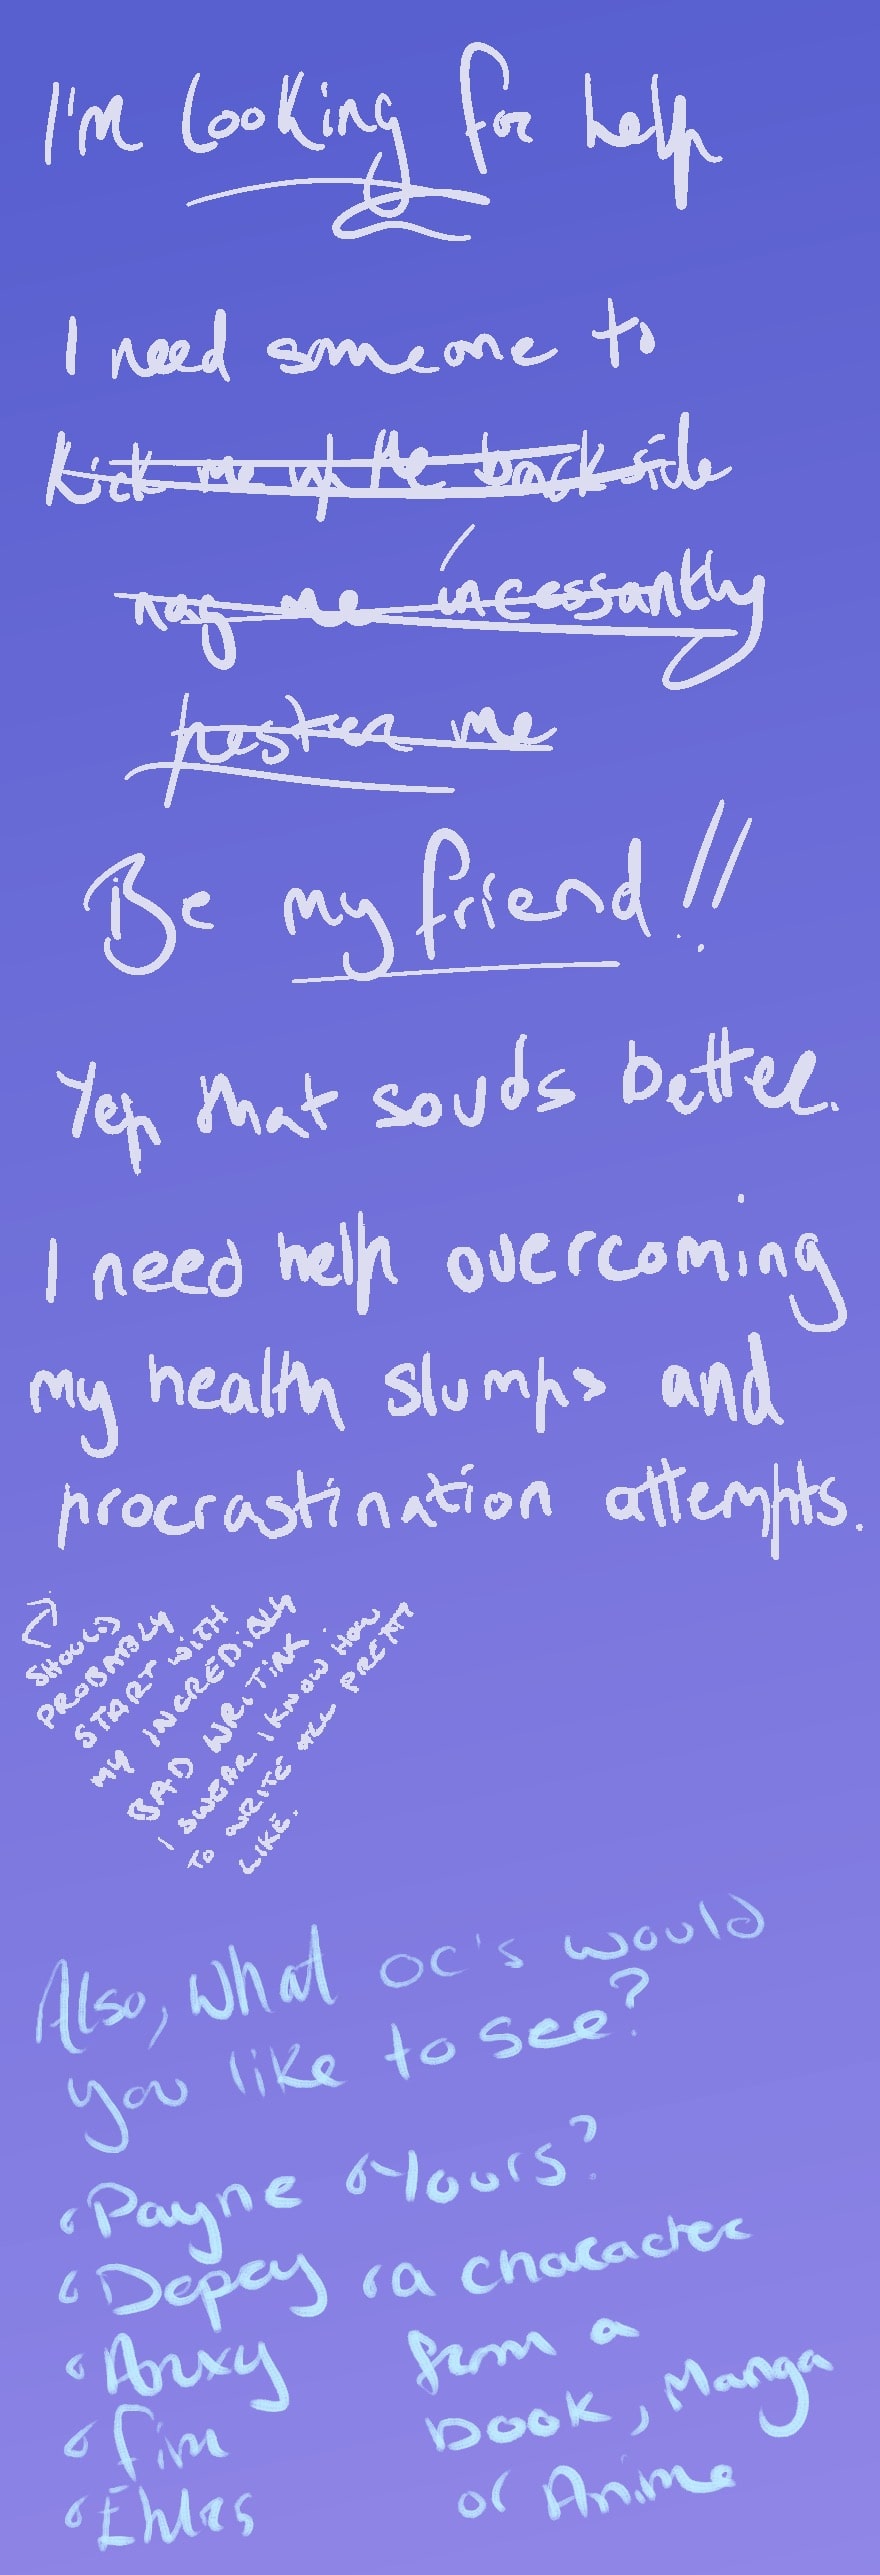 I'm Looking for help
I need someone to
kick me up the backside
nag me incessantly
pester me
Be my friend!!
Yep that souds better.
I need help overcoming
my health slumps and
procrastination attempts.
SHOULD
PROBABLY
START WITH
MY INCREDIBLY
BAD WRITING.
I SWEAR I KNOW HOW
TO WRITE ALL PRETTY
LIKE.
Also, what OC's would
you like to see?
Payne
Yours?
Depey
a character
Anxy
from a
Fim
book, Manga
Ehlas
or Anime